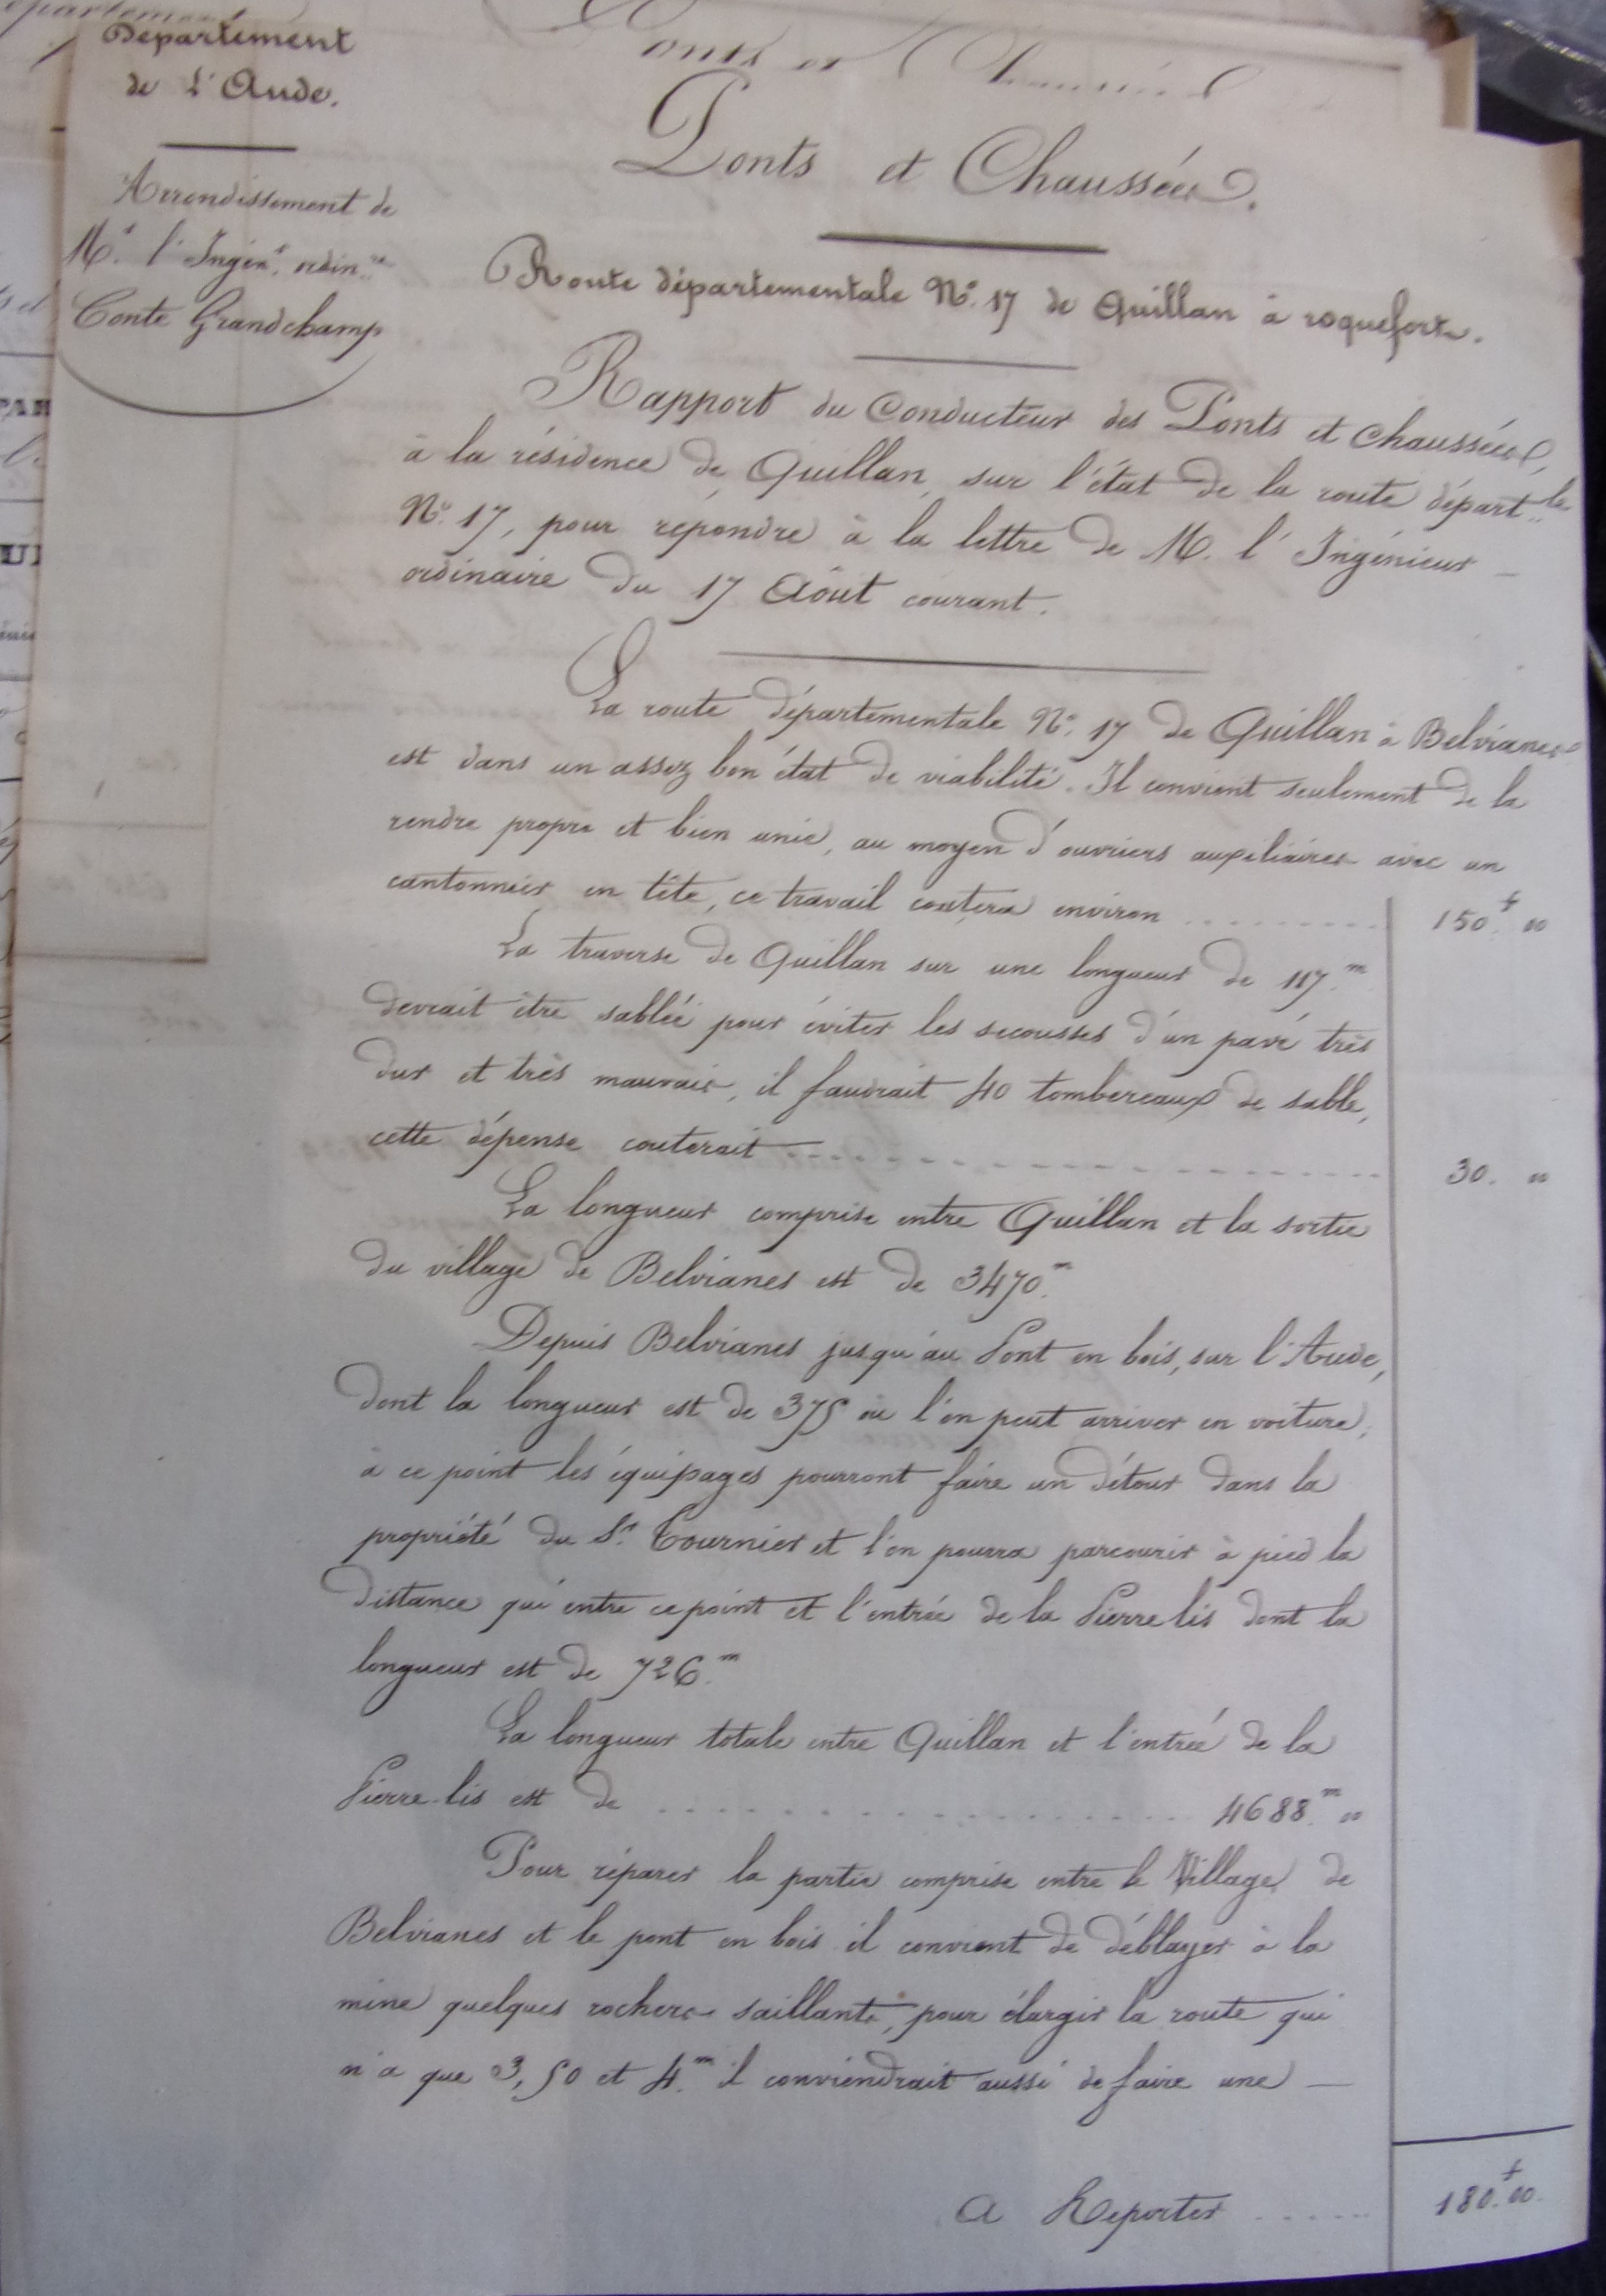 Département
de L'Aude.
Arrondissement de
Mr. l'Ingénr. ordinre
Conte Grandchamp
Ponts et Chaussées.
Route départementale No. 17 de Quillan à roquefort.
Rapport du Conducteur des Ponts et Chaussées,
à la résidence de Quillan, sur l'état de la route départle
No. 17, pour répondre à la lettre de M. l'Ingénieur
ordinaire du 17 Août courant.
La route départementale No. 17 de Quillan à Belvianes
est dans un assez bon état de viabilité. Il convient seulement de la
rendre propre et bien unie, au moyen d'ouvriers auxiliaires avec un
cantonnier en tête, ce travail coutera environ ........ 150f. 00
La traverse de Quillan sur une longueur de 117.m
devrait être sablée pour éviter les secousses d'un pavé très
dur et très mauvais, il faudrait 40 tombereaux de sable,
cette dépense couterait ........ 30. 00
La longueur comprise entre Quillan et la sortie
du village de Belvianes est de 3470.m
Depuis Belvianes jusqu'au Pont en bois, sur l'Aude,
dont la longueur est de 375 où l'on peut arriver en voiture;
à ce point les équipages pourront faire un détour dans la
propriété du Sr. Tournier et l'on pourra parcourir à pied la
distance qui entre ce point et l'entrée de la Pierre lis dont la
longueur est de 726.m
La longueur totale entre Quillan et l'entrée de la
Pierre-lis est de ........ 4688.m 00
Pour réparer la partie comprise entre le Village de
Belvianes et le pont en bois il convient de déblayer à la
mine quelques rochers saillants, pour élargir la route qui
n'a que 3,50 et 4.m il conviendrait aussi de faire une —
A Reporter ..... 180f.00.